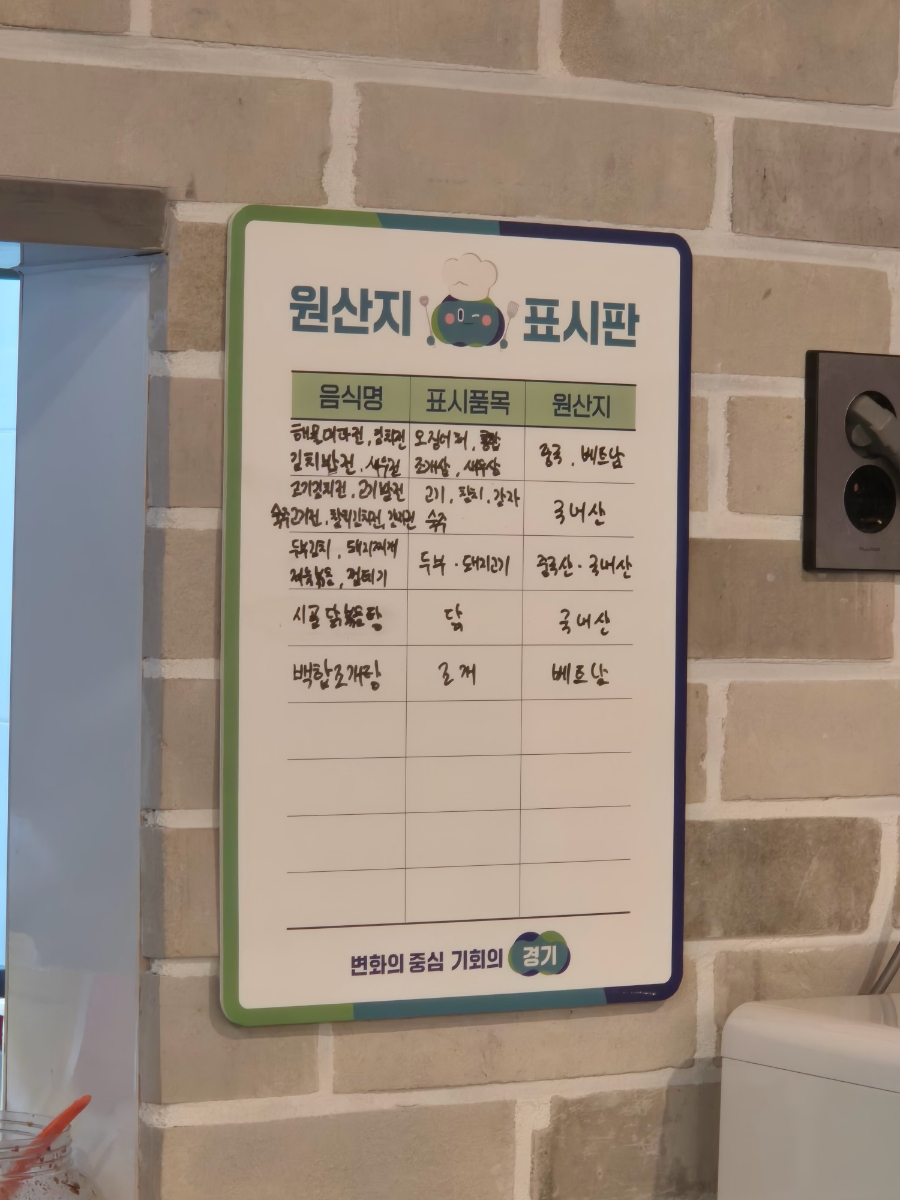 원산지 표시판
음식명 표시품목 원산지
해물파전, 김치전 오징어, 홍합 중국, 베트남
김치전, 새우전 조개살, 새우살
고기김치전, 고기전 고기, 김치, 감자 국내산
숙주고기전, 김치전, 감자전 숙주
두부김치, 돼지찌개 두부 · 돼지고기 중국산 · 국내산
제육볶음
시골 닭볶음탕 닭 국내산
백합조개탕 조개 베트남
변화의 중심 기회의 경기